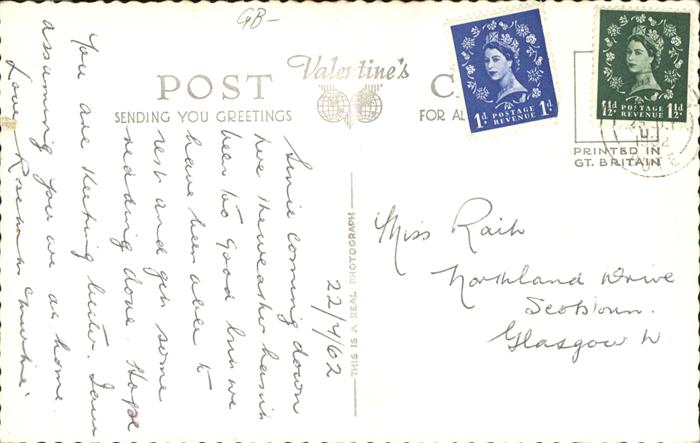 GB-
POST
Valentine's
SENDING YOU GREETINGS
FOR AL
1d. POSTAGE REVENUE 1d.
1½d. POSTAGE REVENUE 1½d.
PRINTED IN
GT. BRITAIN
THIS IS A REAL PHOTOGRAPH
22/4/62
Since coming down
here the weather hasn't
been too good but we
have been able to
rest and get some
reading done. Hope
you are keeping better. I am
assuming you are at home.
Love,
Miss Rait
Northland Drive
Scotstoun.
Glasgow W